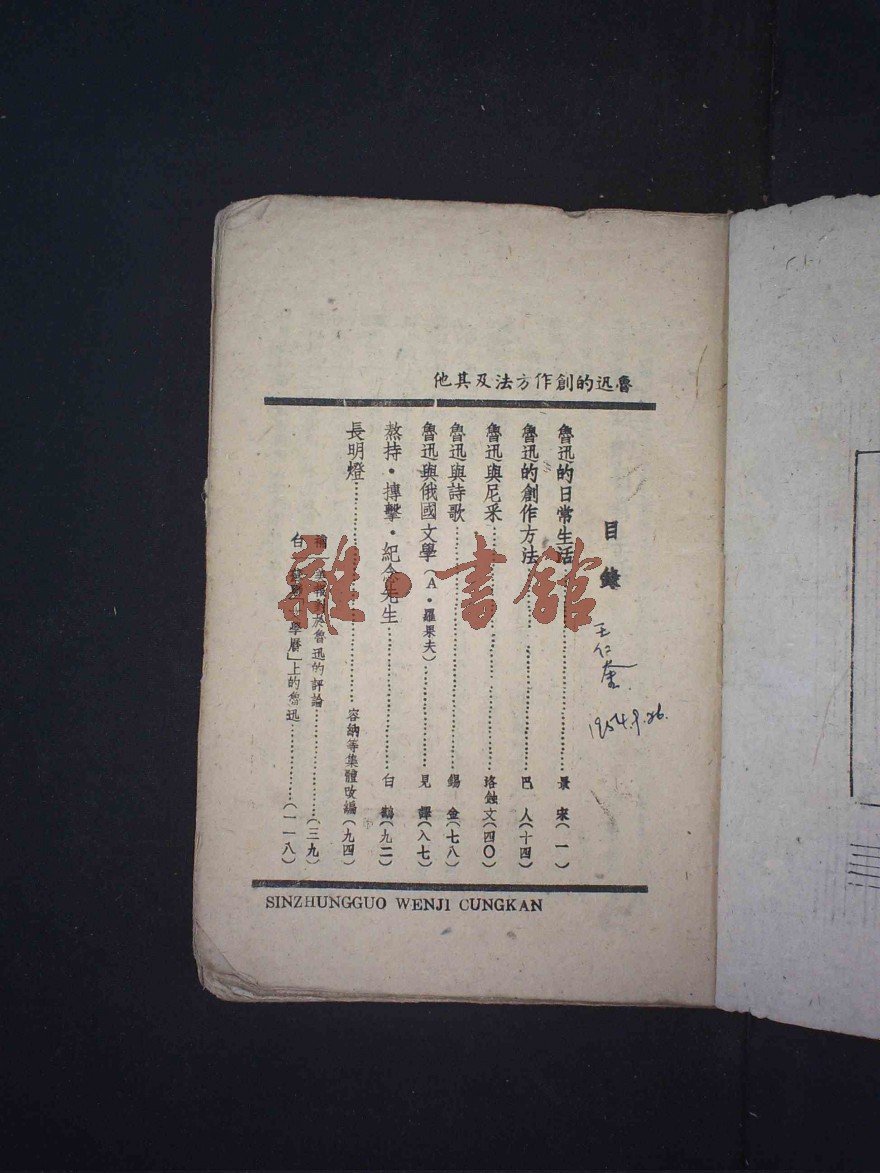 魯迅的創作方法及其他
目錄
王仁
1954.9.26.
魯迅的日常生活……景宋(一)
魯迅的創作方法……巴人(十四)
魯迅與尼采……洛蝕文(四〇)
魯迅與詩歌……錫金(七八)
魯迅與俄國文學(A·羅果夫)……見譯(八七)
熬持·摶擊·紀念先生……白鶴(九二)
長明燈……容納等集體改編(九四)
補 於魯迅的評論……(三九)
白 學曆」上的魯迅……(一一八)
SINZHUNGGUO WENJI CUNGKAN
雜·書館